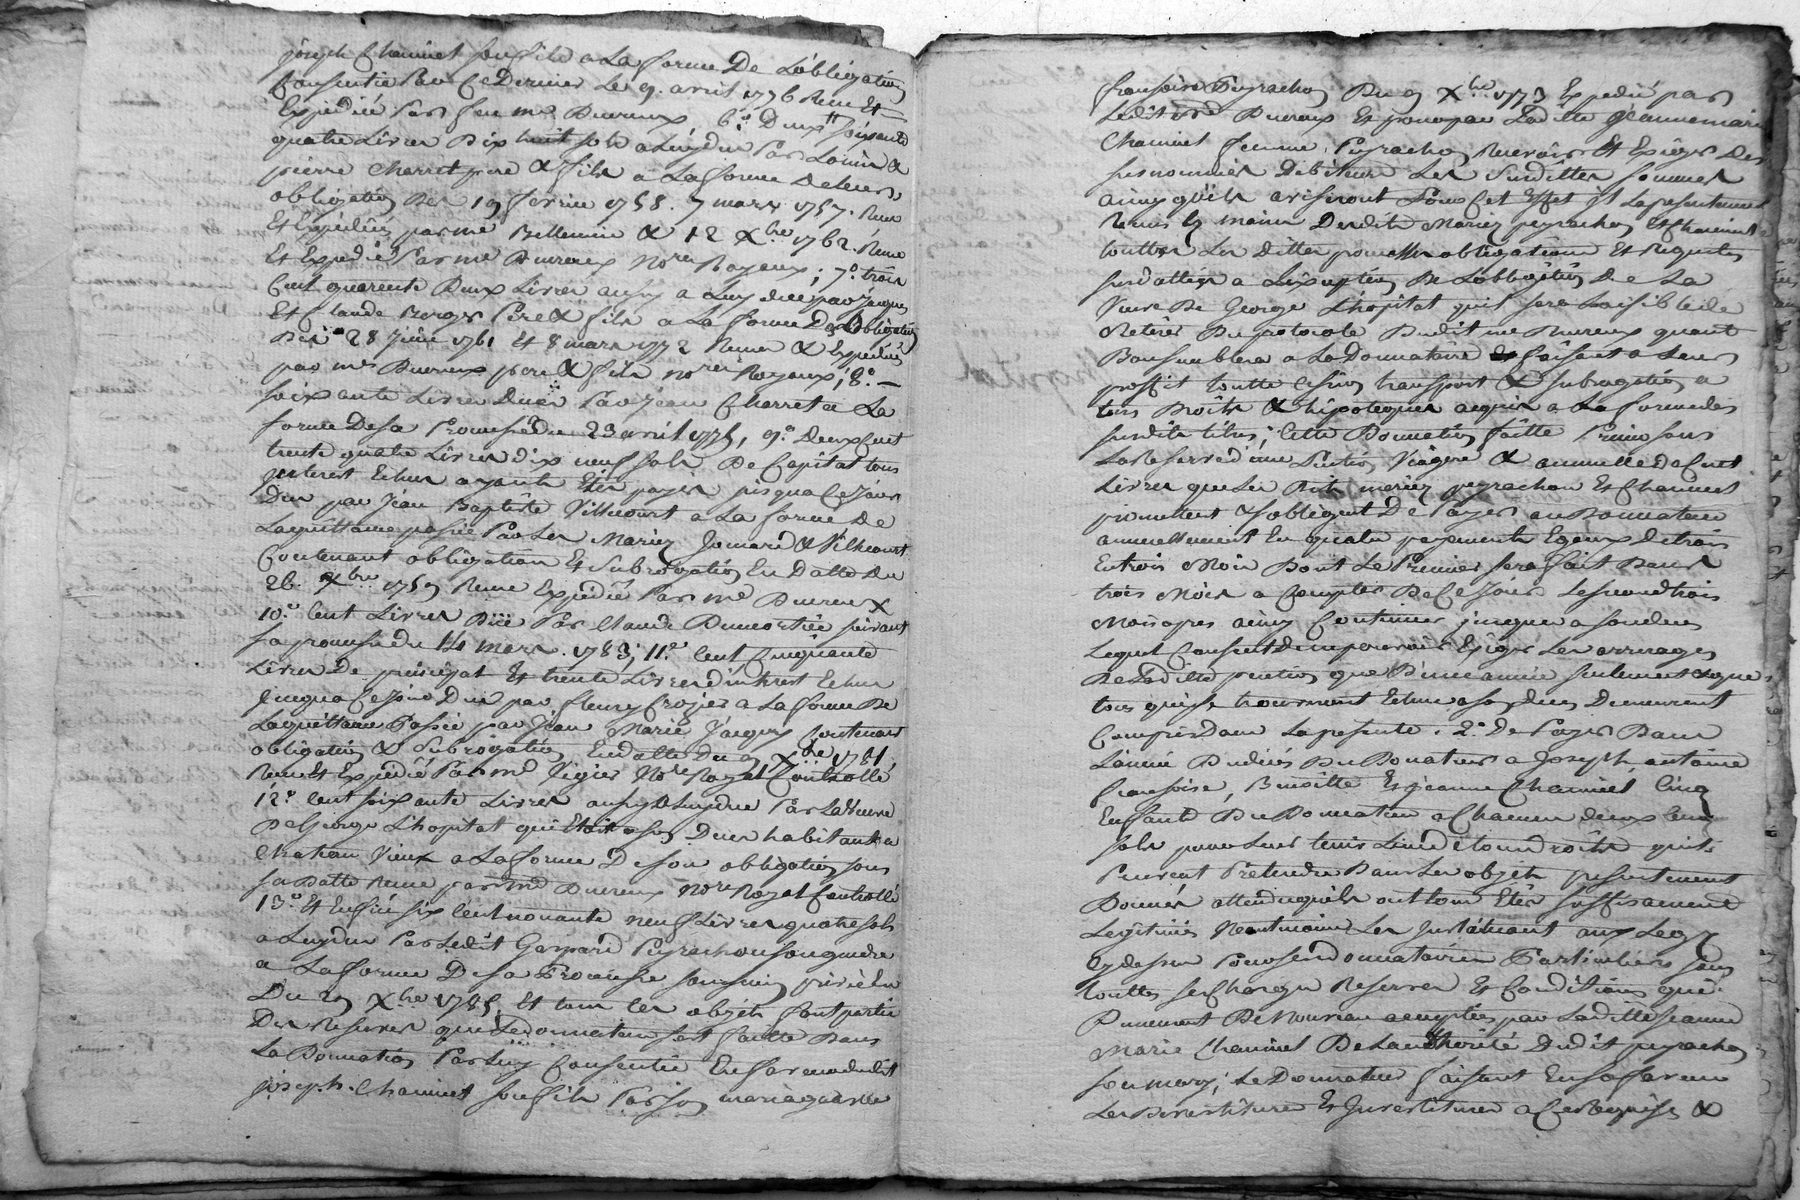 joseph Chaminet son fils a La forme De Lobligation
Consentie Par Ce Dernier Le 9. avril 1776 Reçue Et
Expediée Par feu me Dureux 6.° Deux soixante
quatre Livres Dix huit sols a Luy due Par Loüis &
pierre Charret pere & fils a La forme De leurs
obligation Des 19 fevrier 1758. 7 mars 1757. Reçue
Et Expediées par me Bellemin & 12 Xbre 1762. Reçue
Et Expediée Par me Dureux nores Royaux ; 7.° trois
Cent quarente Deux Livres aussy a Luy due par Jacques
Et Claude Roger Pere & fils a La forme Des obligation
Des 28 Juin 1761 Et 8 mars 1772 Reçues & Expediées
par mes Dureux pere & fils nores Royaux ; 8.°
soixante Livres Dues Par Jean Charret a La
forme De sa Promesse du 23 avril 1775, 9.° Deux Cent
trente quatre Livres dix neuf sols De Capital tous
interest Echus ayants Etés payes jusqua Ce Jour
Due par Jean Baptiste Villecourt a La forme De
La quittance passée Par Les Mariez Jomard & Villecourt
Contenant obligation Et Subrogation En Datte Du
26. Xbre 1759 Reçue Expediée Par me Dureux
10.° Cent Livres Düe Par Claude Dumortier suivant
sa promesse du 14 mars. 1783; 11.° Cent Cinquante
Livres De principal Et trente Livres d'interest Echus
Jusqua Ce jour Due par fleury Crozier a La forme De
La quittance Passée par Jean Marie Jacquy Contenant
obligation & Subrogation En datte Du 9 Xbre 1781
Reçue Et Expediée Par me Vegier Nore Royal Controllé
12.° Cent soixante Livres aussy a Luy due Par La Veuve
De George Lhopital qui Etoit a son Deces habitante a
Chateau Vieux a La forme De son obligation sous
sa Datte Reçue par me Dureux nore Royal Controllé
13.° Et Enfin six Cent nonante neuf Livres quatre sols
a Luy due Par Ledit Gaspard Peyrachon son gendre
a La forme De sa Promesse sous seing privé du
Du 29 Xbre 1785, Et tous les objets font partie
Des Reserves que Le donnateur s'est faitte Dans
La Donnation Par Luy Consentie En faveur dudit
joseph Chaminet son fils Par son mariage avec
françoise Peyrachon Du 9 Xbre 1773 Expedié par
Ledit me Dureux Et pour par Ladite Jeanne marie
Chaminet femme Peyrachon Recevoir Et Exiger Des
susnommés Debiteurs Les Susdittes sommes
ainsy quils aviseront Pour Cet Effet Il a presentement
Remis Es mains Desdits Mariez peyrachon Et Chaminet
touttes Les dittes promesses obligations Et Requetes
susdattées a L'exception De L'obligation De La
Veuve De George Lhopital quil sera Loisible de
Retirer Du protocole Dudit me Dureux quant
Bon semblera a La Donnataire faisant a Leurs
proffit toutte Cession transport & subrogation a
tous Droits & hipoteques acquis a La forme des
susdits titres ; Cette Donnation faitte Primo sous
La Reserve d'une Pention Viagere & annuelle De Cent
Livres que Les Dits mariez peyrachon Et Chaminet
promettent & obligent De Payer au Donnateur
annuellement En quatre payements Egaux De trois
En trois Mois Dont Le Premier sera fait Dans
trois Mois a Compter De Ce Jour Le second trois
Mois apres ainsy Continuer jusques a son deces
Lequel Consent De ne pouvoir Exiger Les arrerages
De Ladite pention que D'une année seulement
tous qui se trouveront Echus a son deces Demeurent
Compris dans La presente. 2.° De Payer Dans
L'année Du deces Du Donateur a Joseph, antoine
françoise, Benoitte Et jeanne Chaminet Cinq
Enfants Du Donnateur a Chacun deux Cent
sols pour Leurs tenir Lieu de tous droits quils
Peuvent Pretendre Dans Les objets presentement
Donnés attendu quils ont tous Etés suffisament
Legitimés Neantmoins Les instituant aux Legs
Cy dessus Pour ses donnataires Particuliers sous
touttes ses Charges Reserves Et Conditions que
Purement De Nouveau acceptées par Laditte jeanne
Marie Chaminet De Lauthorité Dudit peyrachon
son mary ; Le Donnateur faisant En sa faveur
Les Devestitures Et Investitures a Ce Requises &